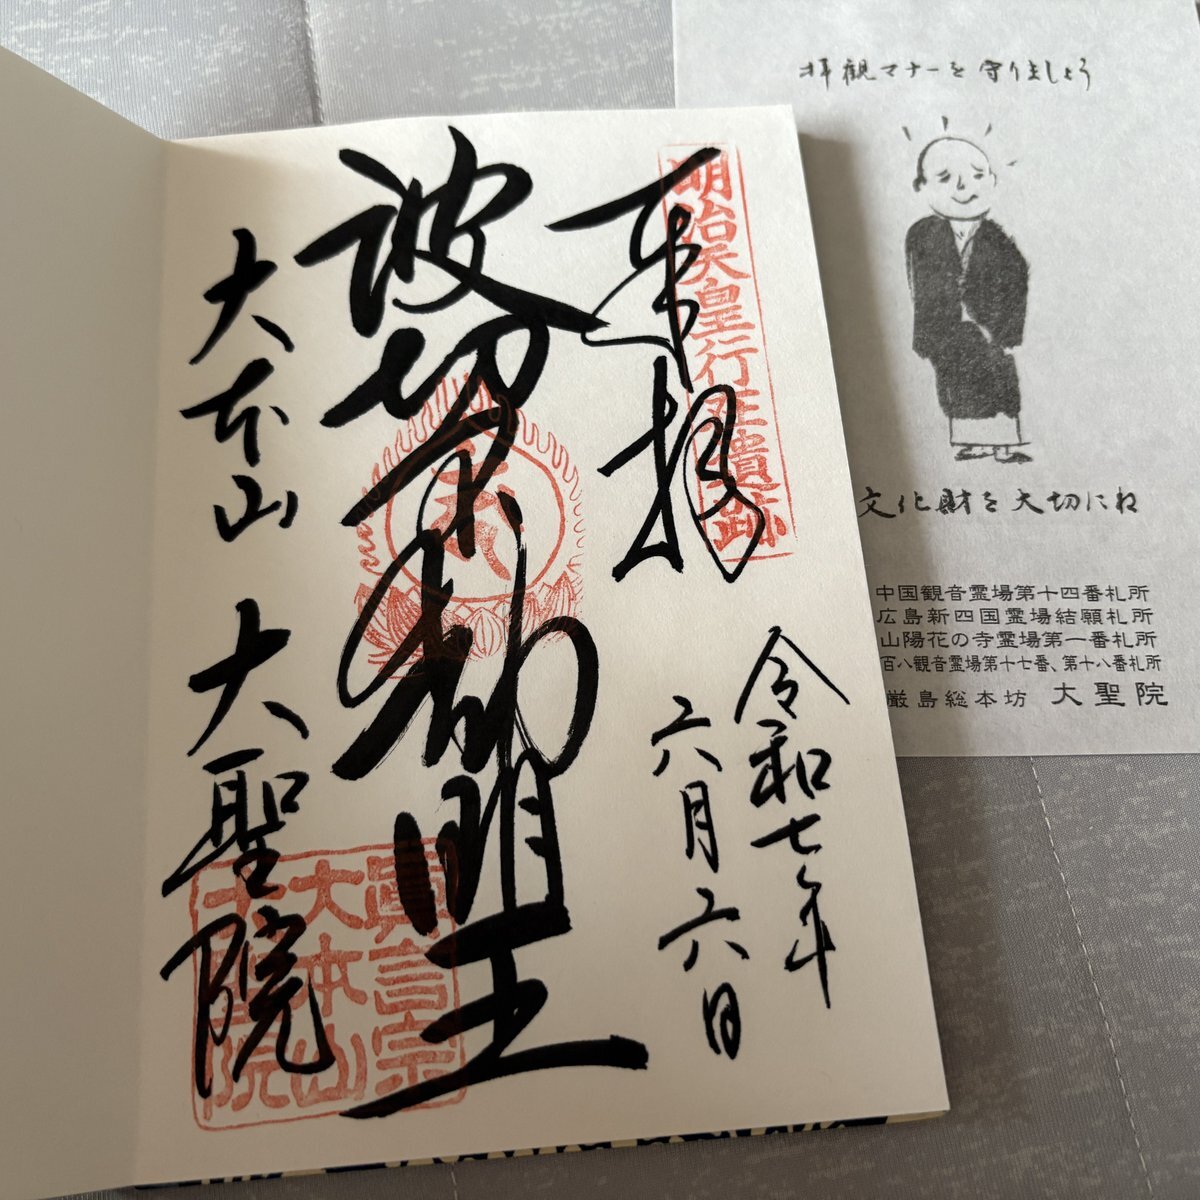 奉拝
明治天皇行在遺跡
令和七年
六月六日
波切不動明王
大本山 大聖院
眞言宗
大本山
大聖院
拝観マナーを守りましょう
文化財を大切にね
中国観音霊場第十四番札所
広島新四国霊場結願札所
山陽花の寺霊場第一番札所
百八観音霊場第十七番、第十八番札所
厳島総本坊 大聖院